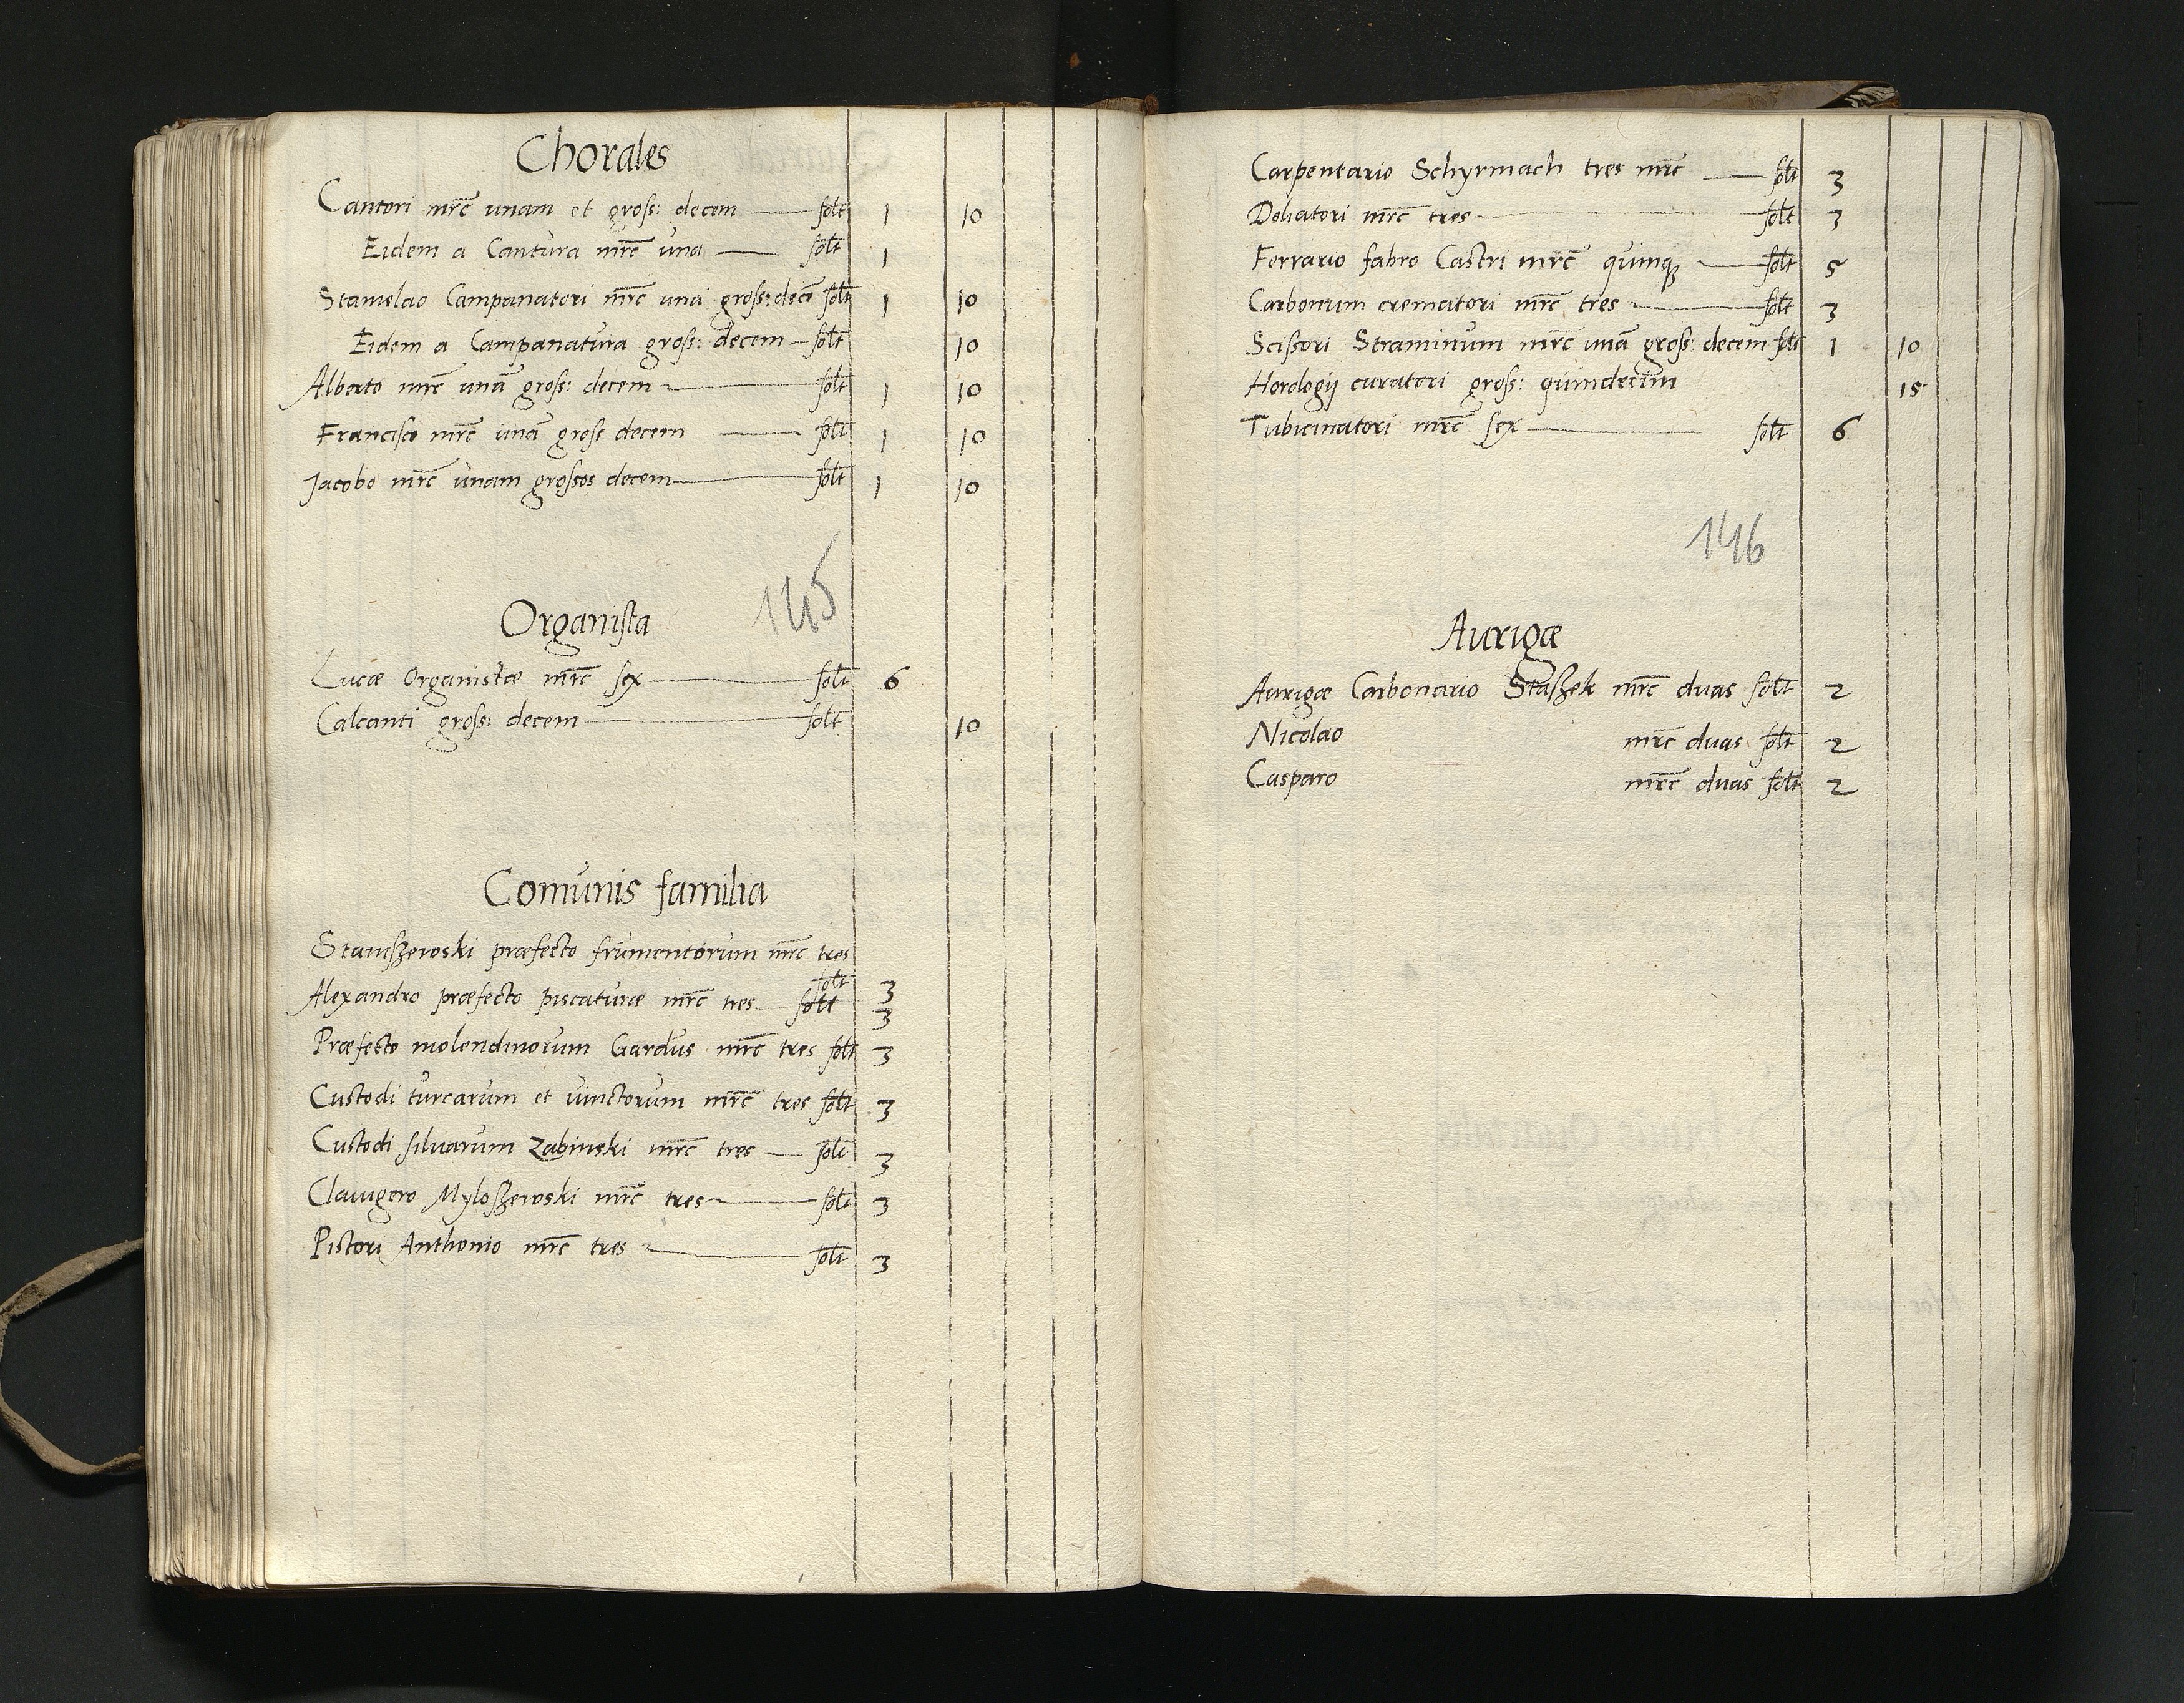 Chorales
Cantori mrc̄ unam et gross: decem solt 1 10
Eidem a Cantura mrc̄ una solt 1
Stanislao Campanatori mrc̄ unā gross: decē solt 1 10
Eidem a Campanatura gross: decem solt 10
Alberto mrc̄ unā gross: decem solt 1 10
Francisco mrc̄ unā gross decem solt 1 10
Jacobo mrc̄ unam grossos decem solt 1 10
145
Organista
Lucæ Organistæ mrc̄ sex solt 6
Calcanti gross: decem solt 10
Comunis familia
Staniszewski præfecto frumentorum mrc̄ tres
solt 3
Alexandro præfecto piscaturæ mrc̄ tres solt 3
Præfecto molendinorum Gardus mrc̄ tres solt 3
Custodi turcarum et vinctorum mrc̄ tres solt 3
Custodi siluarum Zabinski mrc̄ tres solt 3
Clauigero Myloszewski mrc̄ tres solt 3
Pistori Anthonio mrc̄ tres solt 3
Carpentario Schyrmach tres mrc̄ solt 3
Doliatori mrc̄ tres solt 3
Ferrario fabro Castri mrc̄ quinqꝫ solt 5
Carbonum crematori mrc̄ tres solt 3
Scissori Straminum mrc̄ unā gross: decem solt 1 10
Horologij curatori gross: quindecim 15
Tubicinatori mrc̄ sex solt 6
146
Aurigæ
Aurigæ Carbonario Staszek mrc̄ duas solt 2
Nicolao mrc̄ duas solt 2
Casparo mrc̄ duas solt 2